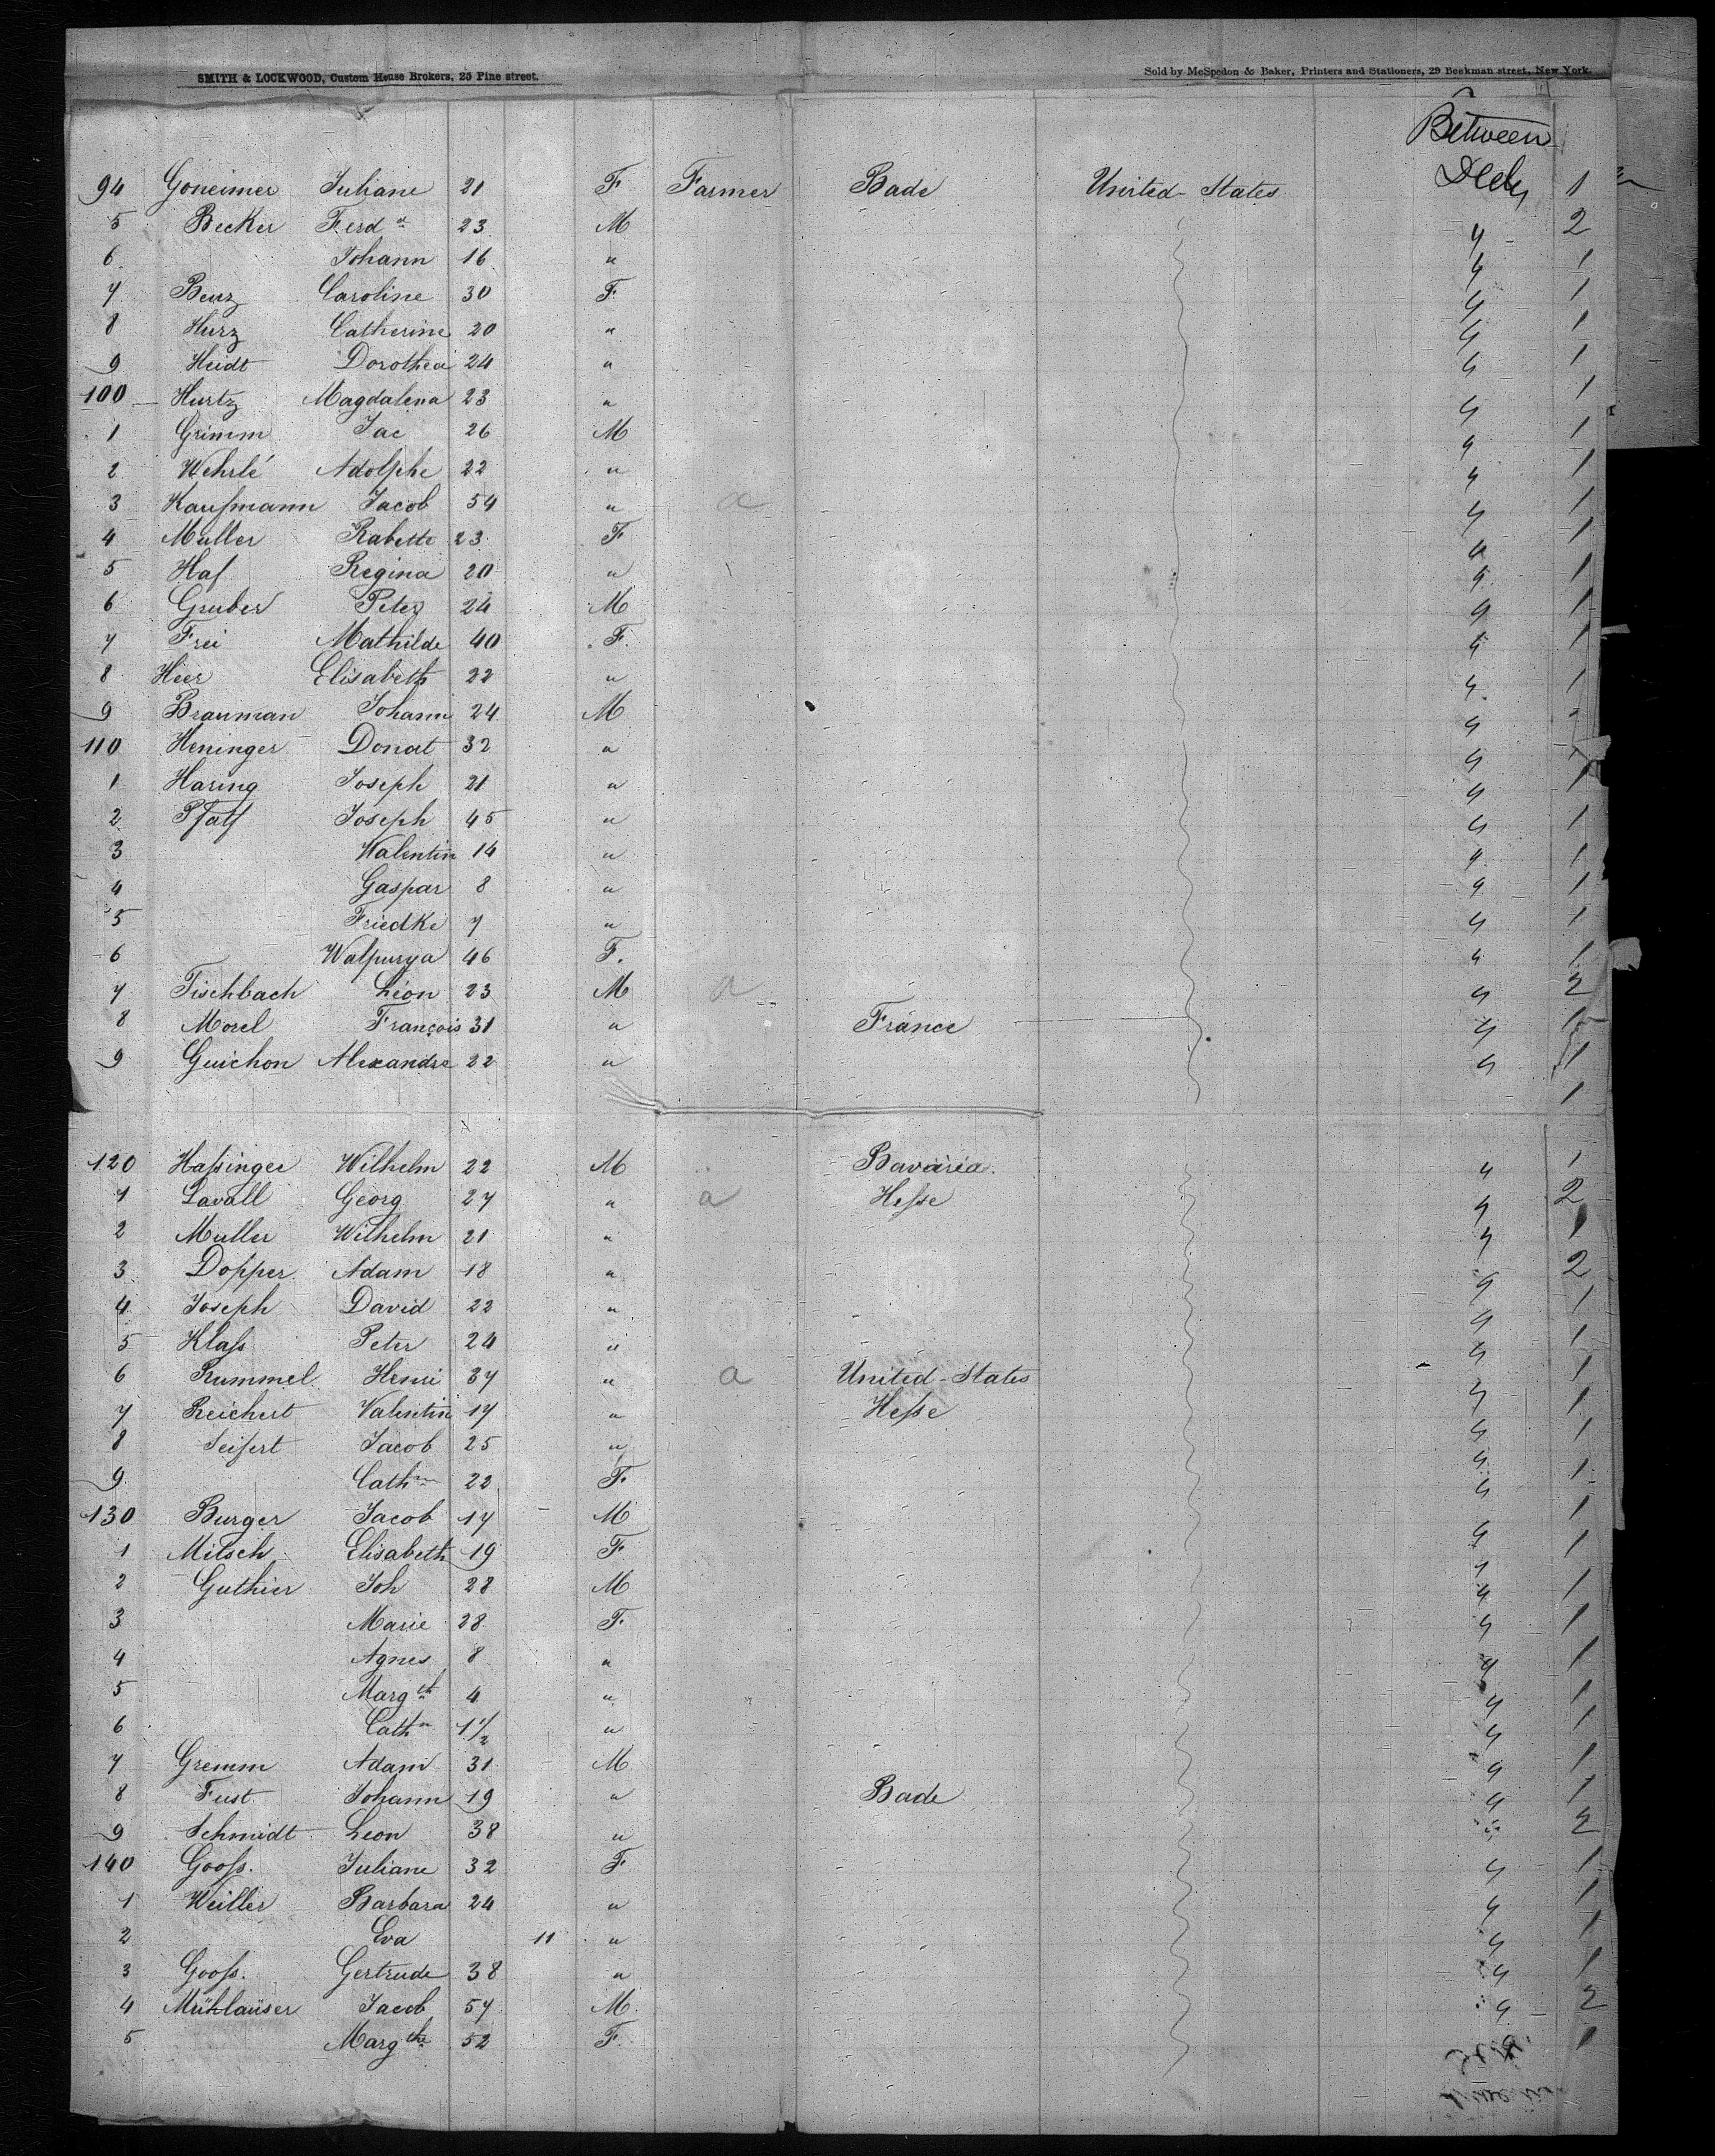 SMITH & LOCKWOOD, Custom House Brokers, 25 Pine street. Sold by McSpedon & Baker, Printers and Stationers, 29 Beekman street, New York.
Between
94 Goneimer Juliane 21 F Farmer Bade United-States Deck 1
5 Becker Ferd 23 M " 2
6 Johann 16 " " 1
7 Benz Caroline 30 F " 1
8 Hurz Catherine 20 " " 1
9 Heidt Dorothea 24 " " 1
100 Hurtz Magdalena 23 " " 1
1 Grimm Jac 26 M " 1
2 Wehrlé Adolphe 22 " " 1
3 Kaufmann Jacob 54 " a " 1
4 Muller Babette 23 F " 1
5 Haf Regina 20 " " 1
6 Gruber Peter 24 M " 1
7 Frei Mathilde 40 F " 1
8 Hier Elisabeth 22 " " 1
9 Brauman Johann 24 M "
110 Heninger Donat 32 " "
1 Haring Joseph 21 " " 1
2 Pfaff Joseph 45 " " 1
3 Walentin 14 " " 1
4 Gaspar 8 " " 1
5 Friedke 7 " " 1
6 Walpurga 46 F. " 1
7 Fischbach Léon 23 M a " 2
8 Morel François 31 " France " 1
9 Guichon Alexandre 22 " " 1
1
120 Haßinger Wilhelm 22 M Bavaria. " 1
1 Lavall Georg 27 " a Heße " 2
2 Muller Wilhelm 21 " " 1
3 Dopper Adam 18 " " 2
4 Joseph David 22 " " 1
5 Klaß Peter 24 " " 1
6 Rummel Henri 37 " a United-States " 1
7 Reichert Valentin 17 " Heße " 1
8 Seifert Jacob 25 " " 1
9 Cath 22 F " 1
130 Burger Jacob 17 M " 1
1 Mitsch Elisabeth 19 F " 1
2 Guthier Joh 28 M " 1
3 Marie 28 F " 1
4 Agnes 8 " " 1
5 Marg 4 " " 1
6 Cath 1 1/2 " " 1
7 Gremm Adam 31 M " 1
8 Fust Johann 19 " Bade " 1
9 Schmidt Leon 38 " " 2
140 Gooß. Juliane 32 F " 1
1 Weiller Barbara 24 " " 1
2 Eva 11 " " 1
3 Gooß. Gertrude 38 " " 1
4 Mühlaüser Jacob 57 M. " 2
5 Marg 52 F. 1